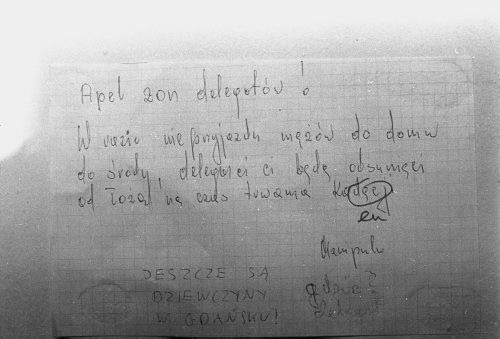 Apel żon delegatów!
W razie nie przyjazdu mężów do domu
do środy, delegaci ci będą odsunięci
od łoża na czas trwania
en
JESZCZE SĄ
DZIEWCZYNY
W GDAŃSKU!
gdzie?